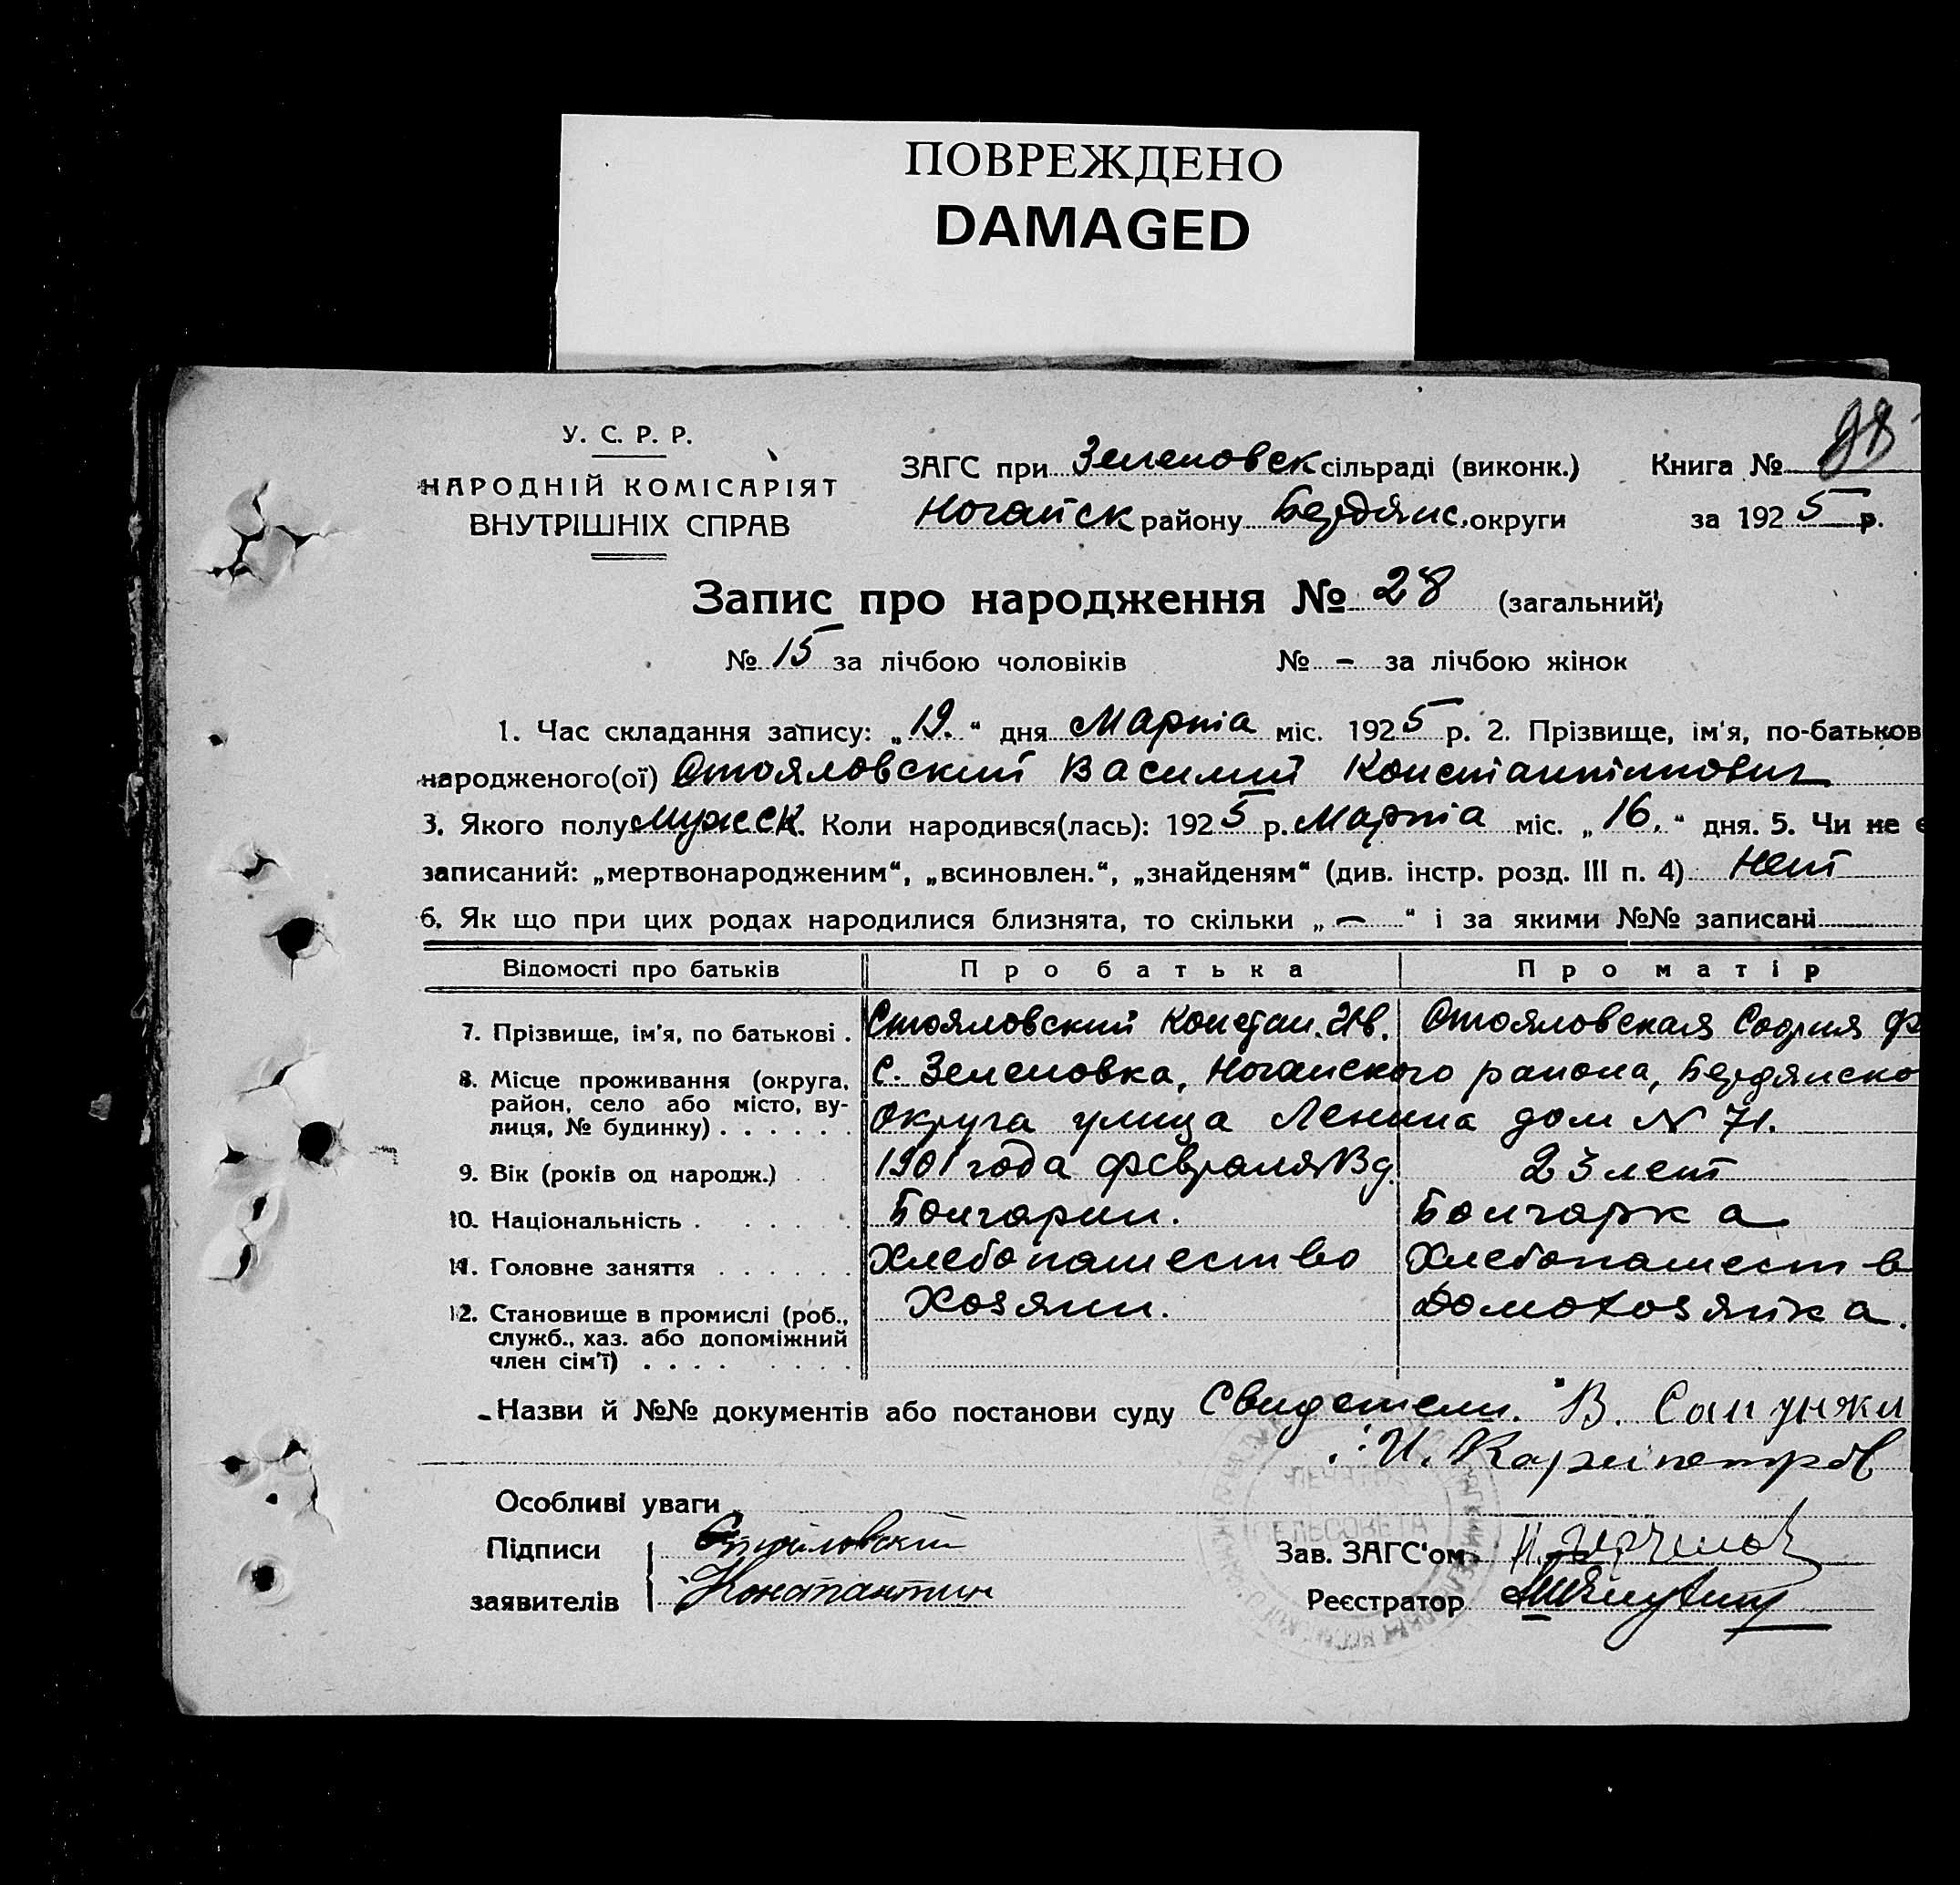 ПОВРЕЖДЕНО
DAMAGED
У. С. Р. Р.
НАРОДНІЙ КОМІСАРІЯТ
ВНУТРІШНІХ СПРАВ
ЗАГС при Зеленовск сільраді (виконк.) Книга №
Ногайск району Бердянс. округи за 1925 р.
Запис про народження № 28 (загальний)
№ 15 за лічбою чоловіків № - за лічбою жінок
1. Час складання запису: „19.“ дня Марта міс. 1925 р. 2. Прізвище, ім'я, по-батьков
народженого(ої) Стояловский Василий Константинович
3. Якого полу мужеск. Коли народився(лась): 1925 р. Марта міс. „16.“ дня. 5. Чи не є
записаний: „мертвонародженим“, „всиновлен.“, „знайденям“ (див. інстр. розд. III п. 4) Нет
6. Як що при цих родах народилися близнята, то скільки „—“ і за якими №№ записані
Відомості про батьків Про батька Про матір
7. Прізвище, ім'я, по батькові . Стояловский Констан. Ив. Стояловская София Ф
8. Місце проживання (округа, с. Зеленовка, Ногайского района, Бердянско
район, село або місто, ву- округа улица Ленина дом № 71.
лиця, № будинку) . . . . . .
9. Вік (років од народж.) . . 1901 года февраля 23 лет
10. Національність . . . . . . Болгарин. Болгарка
11. Головне заняття . . . . . . Хлебопашество Хлебопашеств
12. Становище в промислі (роб., Хозяин. Домохозяйка.
служб., хаз. або допоміжний
член сім'ї) . . . . . . . .
Назви й №№ документів або постанови суду Свидетели. В. Сапунжи
И. Карапетров
Особливі уваги
Підписи Стояловский Зав. ЗАГС'ом
заявителів Константин Реєстратор
ПЕЧАТЬ
СЕЛЬСОВЕТА